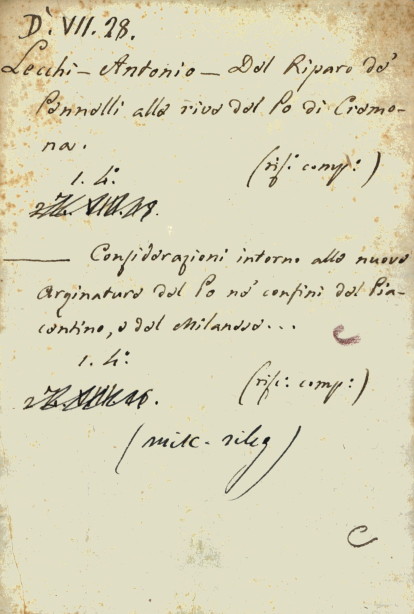 D. VII. 28.
Lecchi - Antonio - Del Riparo de'
Pennelli alle rive del Po di Cremo-
na.
(rif: comp:)
1. 4:
— Considerazioni intorno alle nuove
Arginature del Po ne' confini del Pia-
centino, e del Milanese...
1. 4:
(rif: comp:)
(misc - rileg)
C